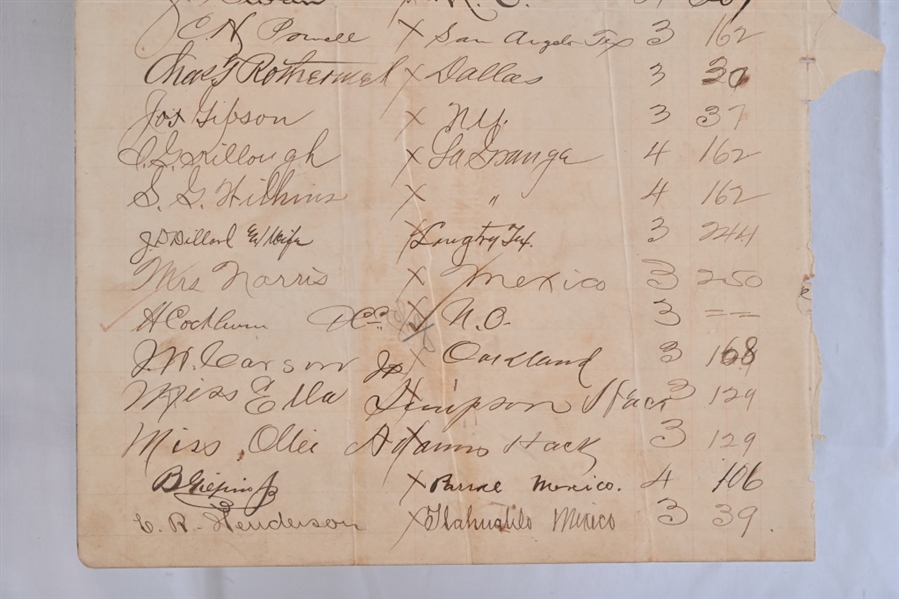 C. N. Powell X San Angelo Tex 3 162
Chas F Rothermel X Dallas 3 30
Jos Gibson X N.Y. 3 37
Killough X La Grange 4 162
S. G. Wilkins X " 4 162
J. D. Dillard & Wife X Langtry Tex. 3 244
Mrs Norris X Mexico 3 250
H Cockburn X N.O. 3 ==
J. W. Carson Jr X Oakland 3 168
Miss Ella Simpson Hack 3 129
Miss Ollie Adams Hack 3 129
X Mexico. 4 106
C. R. Henderson X Tlahualilo Mexico 3 39.